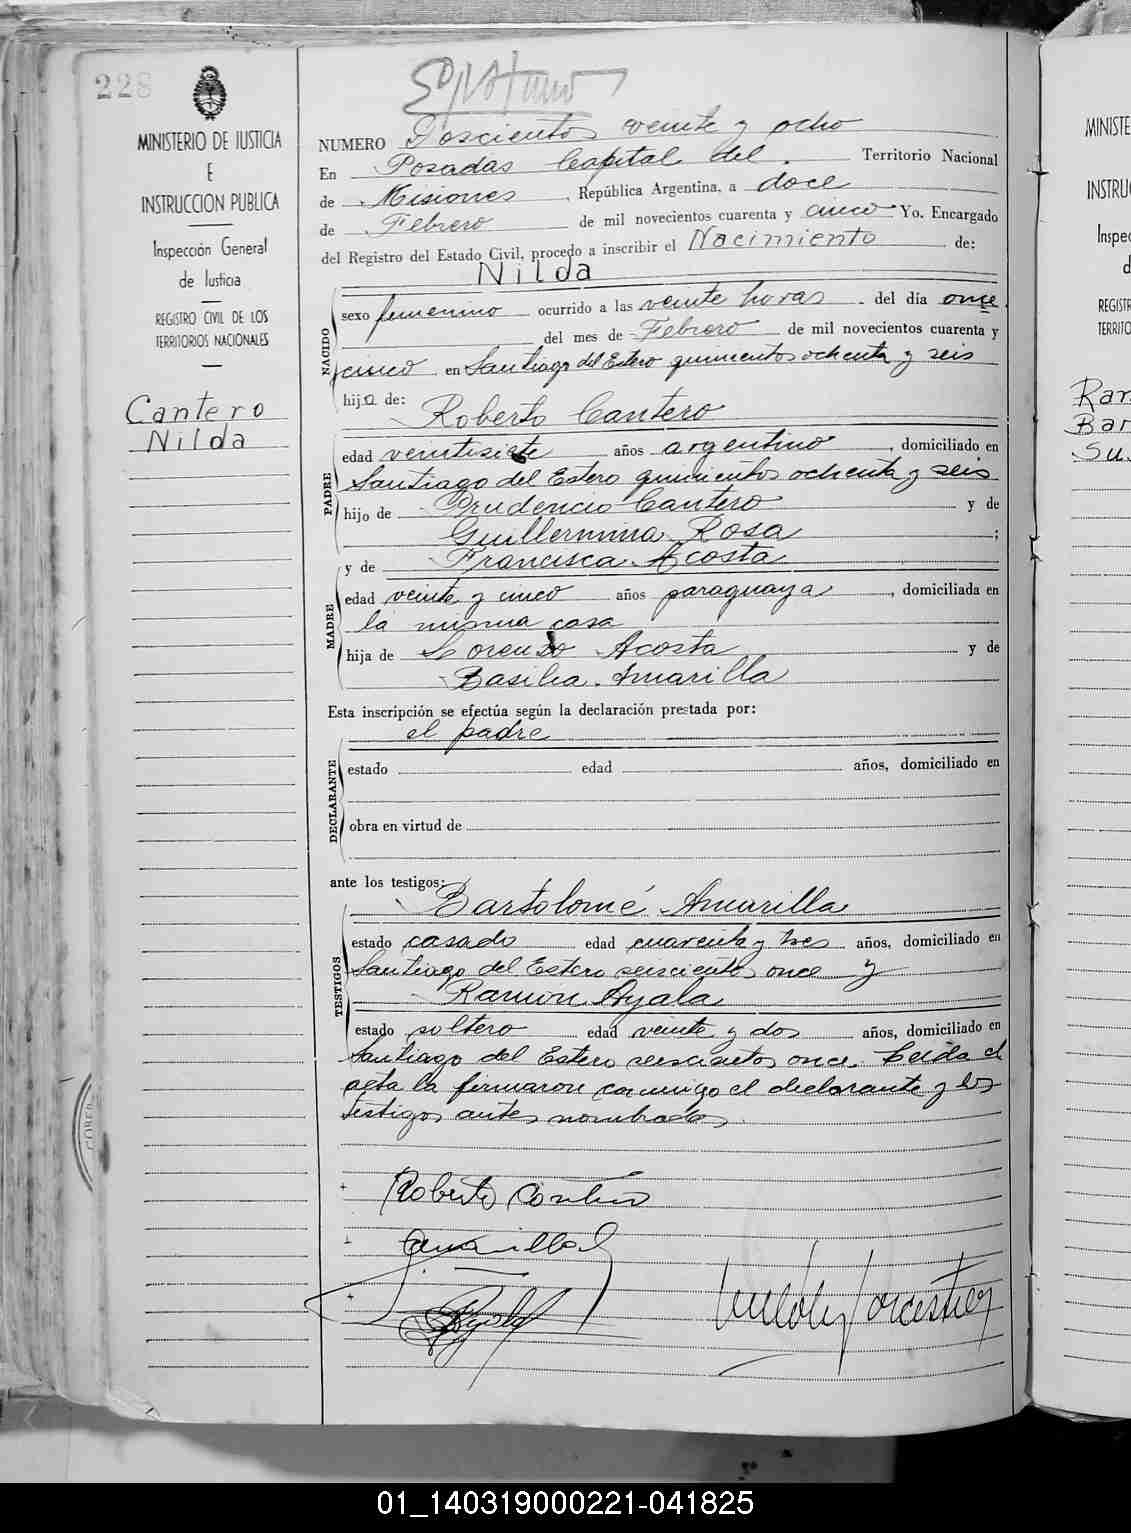 228
MINISTERIO DE JUSTICIA
E
INSTRUCCION PUBLICA
Inspección General
de Justicia
REGISTRO CIVIL DE LOS
TERRITORIOS NACIONALES
Cantero
Nilda
NUMERO Doscientos veinte y ocho
En Posadas Capital del Territorio Nacional
de Misiones, República Argentina, a doce
de Febrero de mil novecientos cuarenta y cinco Yo. Encargado
del Registro del Estado Civil, procedo a inscribir el Nacimiento de:
Nilda
NACIDO
sexo femenino ocurrido a las veinte horas del día once
del mes de Febrero de mil novecientos cuarenta y
cinco en Santiago del Estero quinientos ochenta y seis
hija de:
Roberto Cantero
PADRE
edad veintisiete años argentino, domiciliado en
Santiago del Estero quinientos ochenta y seis
hijo de Prudencio Cantero y de
Guillermina Rosa;
y de Francisca Acosta
MADRE
edad veinte y cinco años paraguaya, domiciliada en
la misma casa
hija de Lorenzo Acosta y de
Basilia Amarilla
Esta inscripción se efectúa según la declaración prestada por:
el padre
DECLARANTE
estado edad años, domiciliado en
obra en virtud de
ante los testigos:
Bartolomé Amarilla
TESTIGOS
estado casado edad cuarenta y tres años, domiciliado en
Santiago del Estero seiscientos once y
Ramón Ayala
estado soltero edad veinte y dos años, domiciliado en
Santiago del Estero seiscientos once. Leida el
acta la firmaron conmigo el declarante y los
testigos antes nombrados.
Roberto Cantero
Amarilla
MINISTE
INSTRU
Inspe
d
REGIST
TERRITO
Ram
Bar
Su
01_140319000221-041825